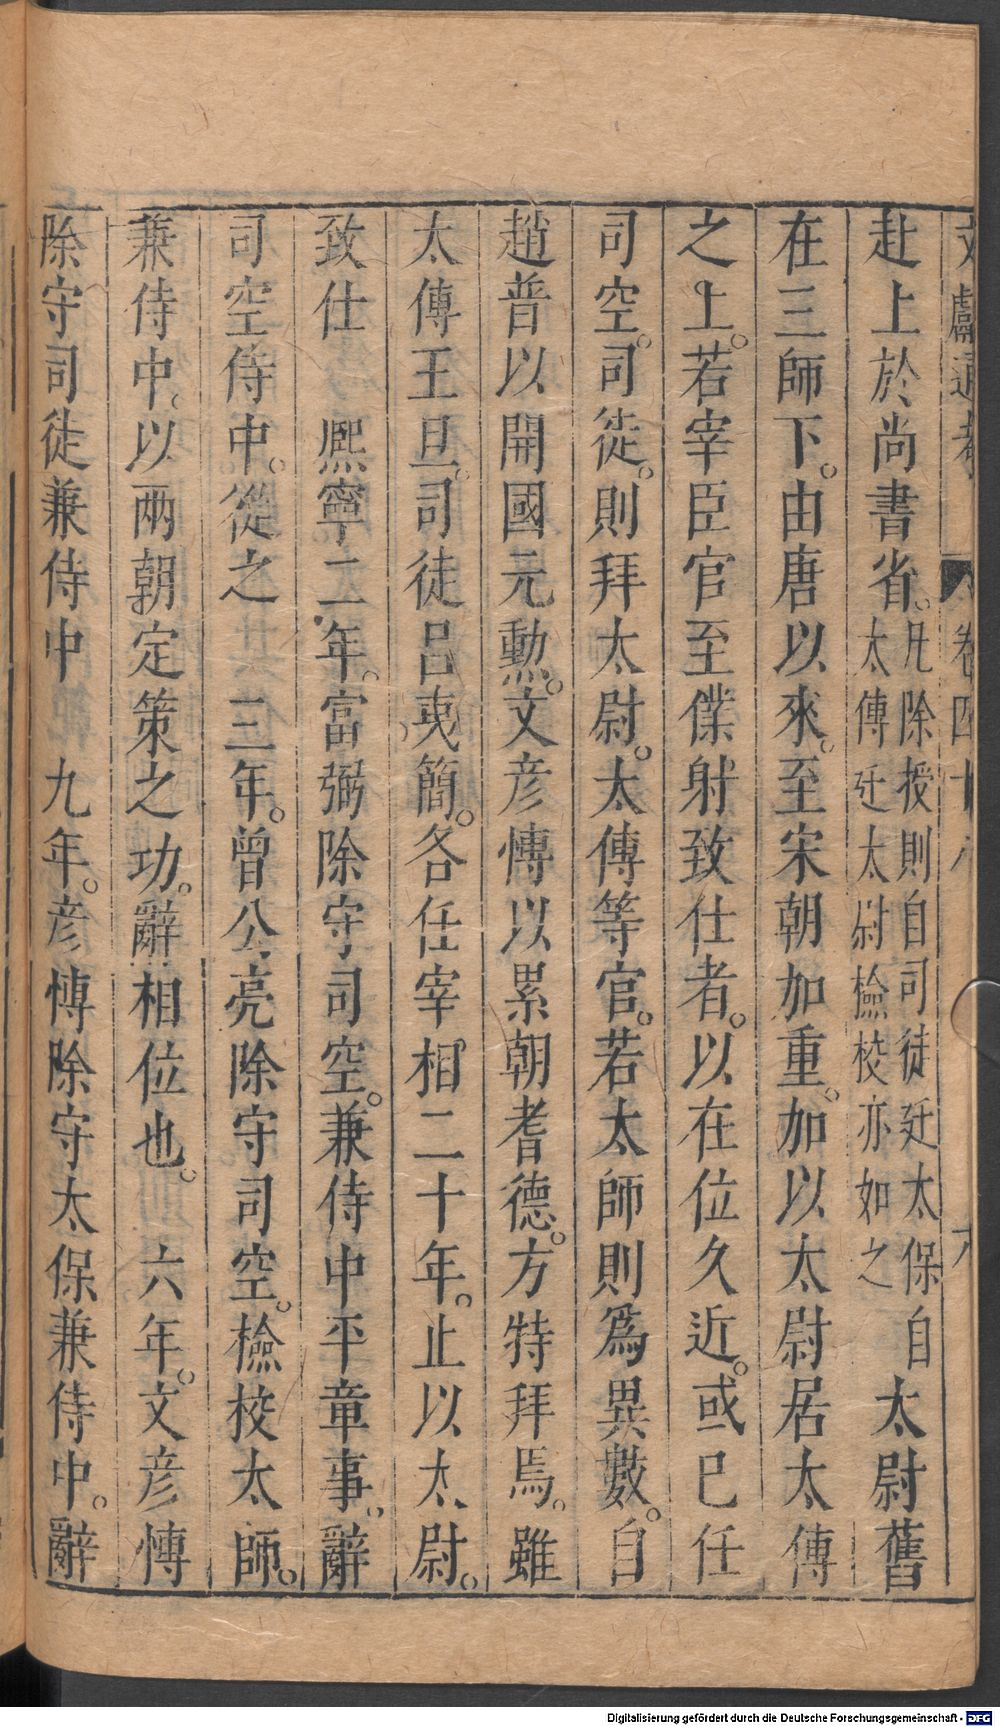 赴上於尚書省。凡除授則自司徒迁太保自太傅迁太尉檢校亦如之太尉舊
在三師下。由唐以來。至宋朝加重。加以太尉居太傅
之上。若宰臣官至僕射致仕者。以在位久近。或已任
司空。司徒。則拜太尉。太傅等官。若太師則爲異數。自
趙普以開國元勳。文彥愽以累朝耆德。方特拜焉。雖
太傅王旦。司徒呂夷簡。各任宰相二十年。止以太尉。
致仕 熈寧二年。富弼除守司空。兼侍中平章事。辭
司空侍中。從之 三年。曾公亮除守司空。檢校太師。
兼侍中。以兩朝定策之功。辭相位也。 六年。文彥愽
除守司徒兼侍中 九年。彥愽除守太保兼侍中。辭
獻通考 卷四十八 六
Digitalisierung gefördert durch die Deutsche Forschungsgemeinschaft - DFG